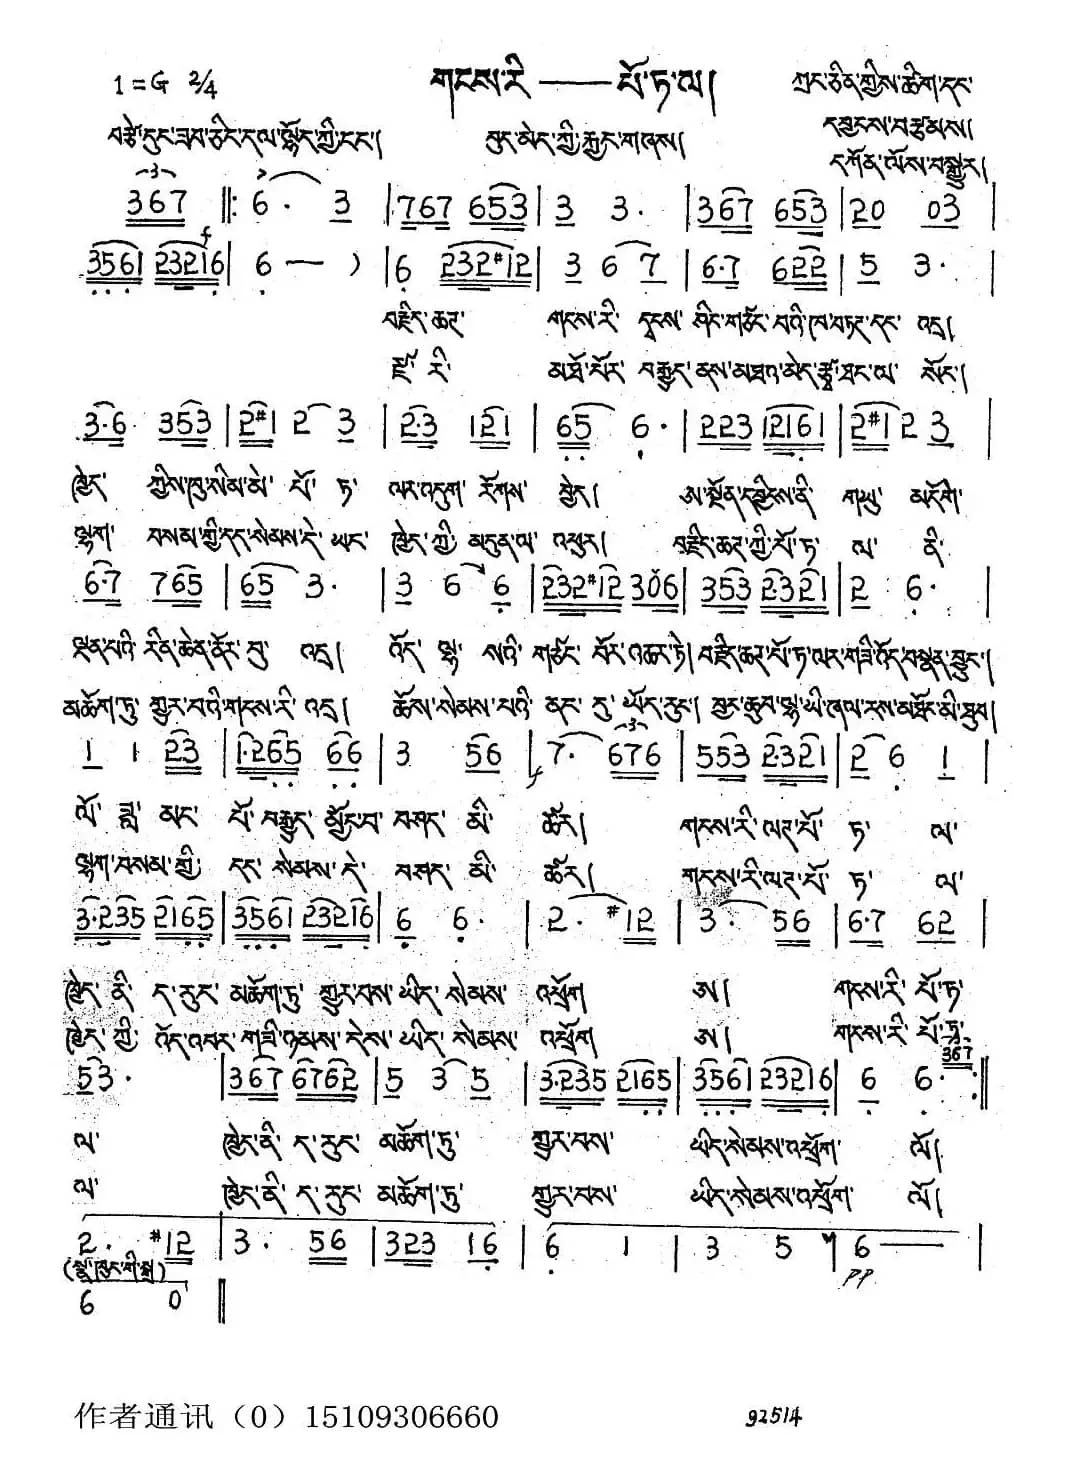 1=G 2/4 གངས་རི — པོ་ཏ་ལ། ཀྲང་ཅིན་གྱིས་ཚིག་དང་
བརྩེ་དུང་ཟབ་ཅིང་དལ་ལྷོད་ཀྱི་ངང་། བུད་མེད་ཀྱི་རྐྱང་གཞས། དབྱངས་བརྩམས།
དཀོན་ལོས་བསྒྱུར།
367 ‖: 6· 3 | 767 653 | 3 3· | 367 653 | 20 03 |
3561 23216 | 6 — ) | 6 232#12 | 3 6 7 | 6·7 622 | 5 3· |
བརྗིད་ཆད་ གངས་རི་ དྭངས་ ཤིང་གཙང་བའི་ཁ་བཏར་དང་ འདྲ།
རྫོ་ རི་ མཐོ་པོར་ བརྒྱུད་ནས་མཐའ་མེད་རྩྭ་ཐང་ལ་ སོང་།
3·6 353 | 2#1 2 3 | 2·3 121 | 65 6· | 223 12161 | 2#1 2 3 |
ཁྱེད་ ཀྱིས་ཁུ་སིམ་མེ་ པོ་ ཏ་ ལར་འདུག་ རོགས་ བྱེད། ཨ་སྔོན་དབྱིངས་ནི་ གཡུ་ མདོག་
ལྷག་ བསམ་གྱི་དད་སེམས་དེ་ ཡང་ ཁྱེད་ཀྱི་ མདུན་ལ་ འཕུར། བརྗིད་ཆད་ཀྱི་པོ་ཏ་ ལ་ ནི་
6·7 765 | 65 3· | 3 6 6 | 232#12 306 | 353 2321 | 2 6· |
ལྡན་པའི་ རིན་ཆེན་ནོར་བུ་ འདྲ། འོད་ ལྷ་ སའི་ གཙང་ བོར་འཆར་ཏེ། བརྗིད་ཆད་པོ་ཏ་ལར་གཟི་འོད་བསྣན་བྱུང་།
མཆོག་ཏུ་ གྱུར་བའི་གངས་རི་ འདྲ། ཆོས་སེམས་པའི་ ནང་ དུ་ ཡོད་རུང་། བྱང་ཆུབ་ལྷ་ཡི་ཞལ་རས་མཐོང་མི་ཐུབ།
1 1 23 | 1·265 66 | 3 56 | 7· 676 | 553 2321 | 2 6 1 |
ལོ་ ཟླ་ མང་ པོ་ བརྒྱུད་ མྱོང་བ་ བཤད་ མི་ ཚར། གངས་རི་ལད་པོ་ ཏ་ ལ་
ལྷག་བསམ་གྱི་ དད་ སེམས་དེ་ བཤད་ མི་ ཚར། གངས་རི་ལད་པོ་ ཏ་ ལ་
3·235 2165 | 3561 23216 | 6 6· | 2· #12 | 3· 56 | 6·7 62 |
ཁྱེད་ ནི་ ད་རུང་ མཆོག་ཏུ་ གྱུར་བས་ ཡིད་ སེམས་ འཕྲོག ཨ། གངས་རི་ པོ་ཏ་
ཁྱེད་ ཀྱི་ འོད་འབར་ གཟི་ཉམས་ དེས་ ཡིད་ སེམས་ འཕྲོག ཨ། གངས་རི་ པོ་ཏ་
367
53· | 367 6762 | 5 3 5 | 3·235 2165 | 3561 23216 | 6 6· :‖
ལ་ ཁྱེད་ནི་ ད་ རུང་ མཆོག་ཏུ་ གྱུར་བས་ ཡིད་སེམས་འཕྲོག་ ལོ།
ལ་ ཁྱེད་ནི་ ད་ རུང་ མཆོག་ཏུ་ གྱུར་བས་ ཡིད་སེམས་འཕྲོག་ ལོ།
2· #12 | 3· 56 | 323 16 | 6 1 | 3 5 | 6 — |
pp
6 0 ‖
作者通讯（0）15109306660 92514